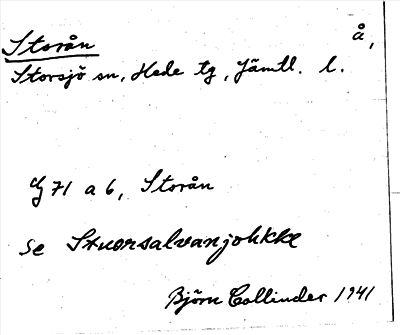 Storån å,
Storsjö sn, Hede tg, Jämtl. l.
71 a 6, Storån
se Stuorsalvanjohkke
Björn Collinder 1941